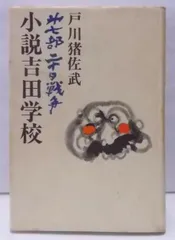 戸川猪佐武
第七部 二十日戦争
小説吉田学校